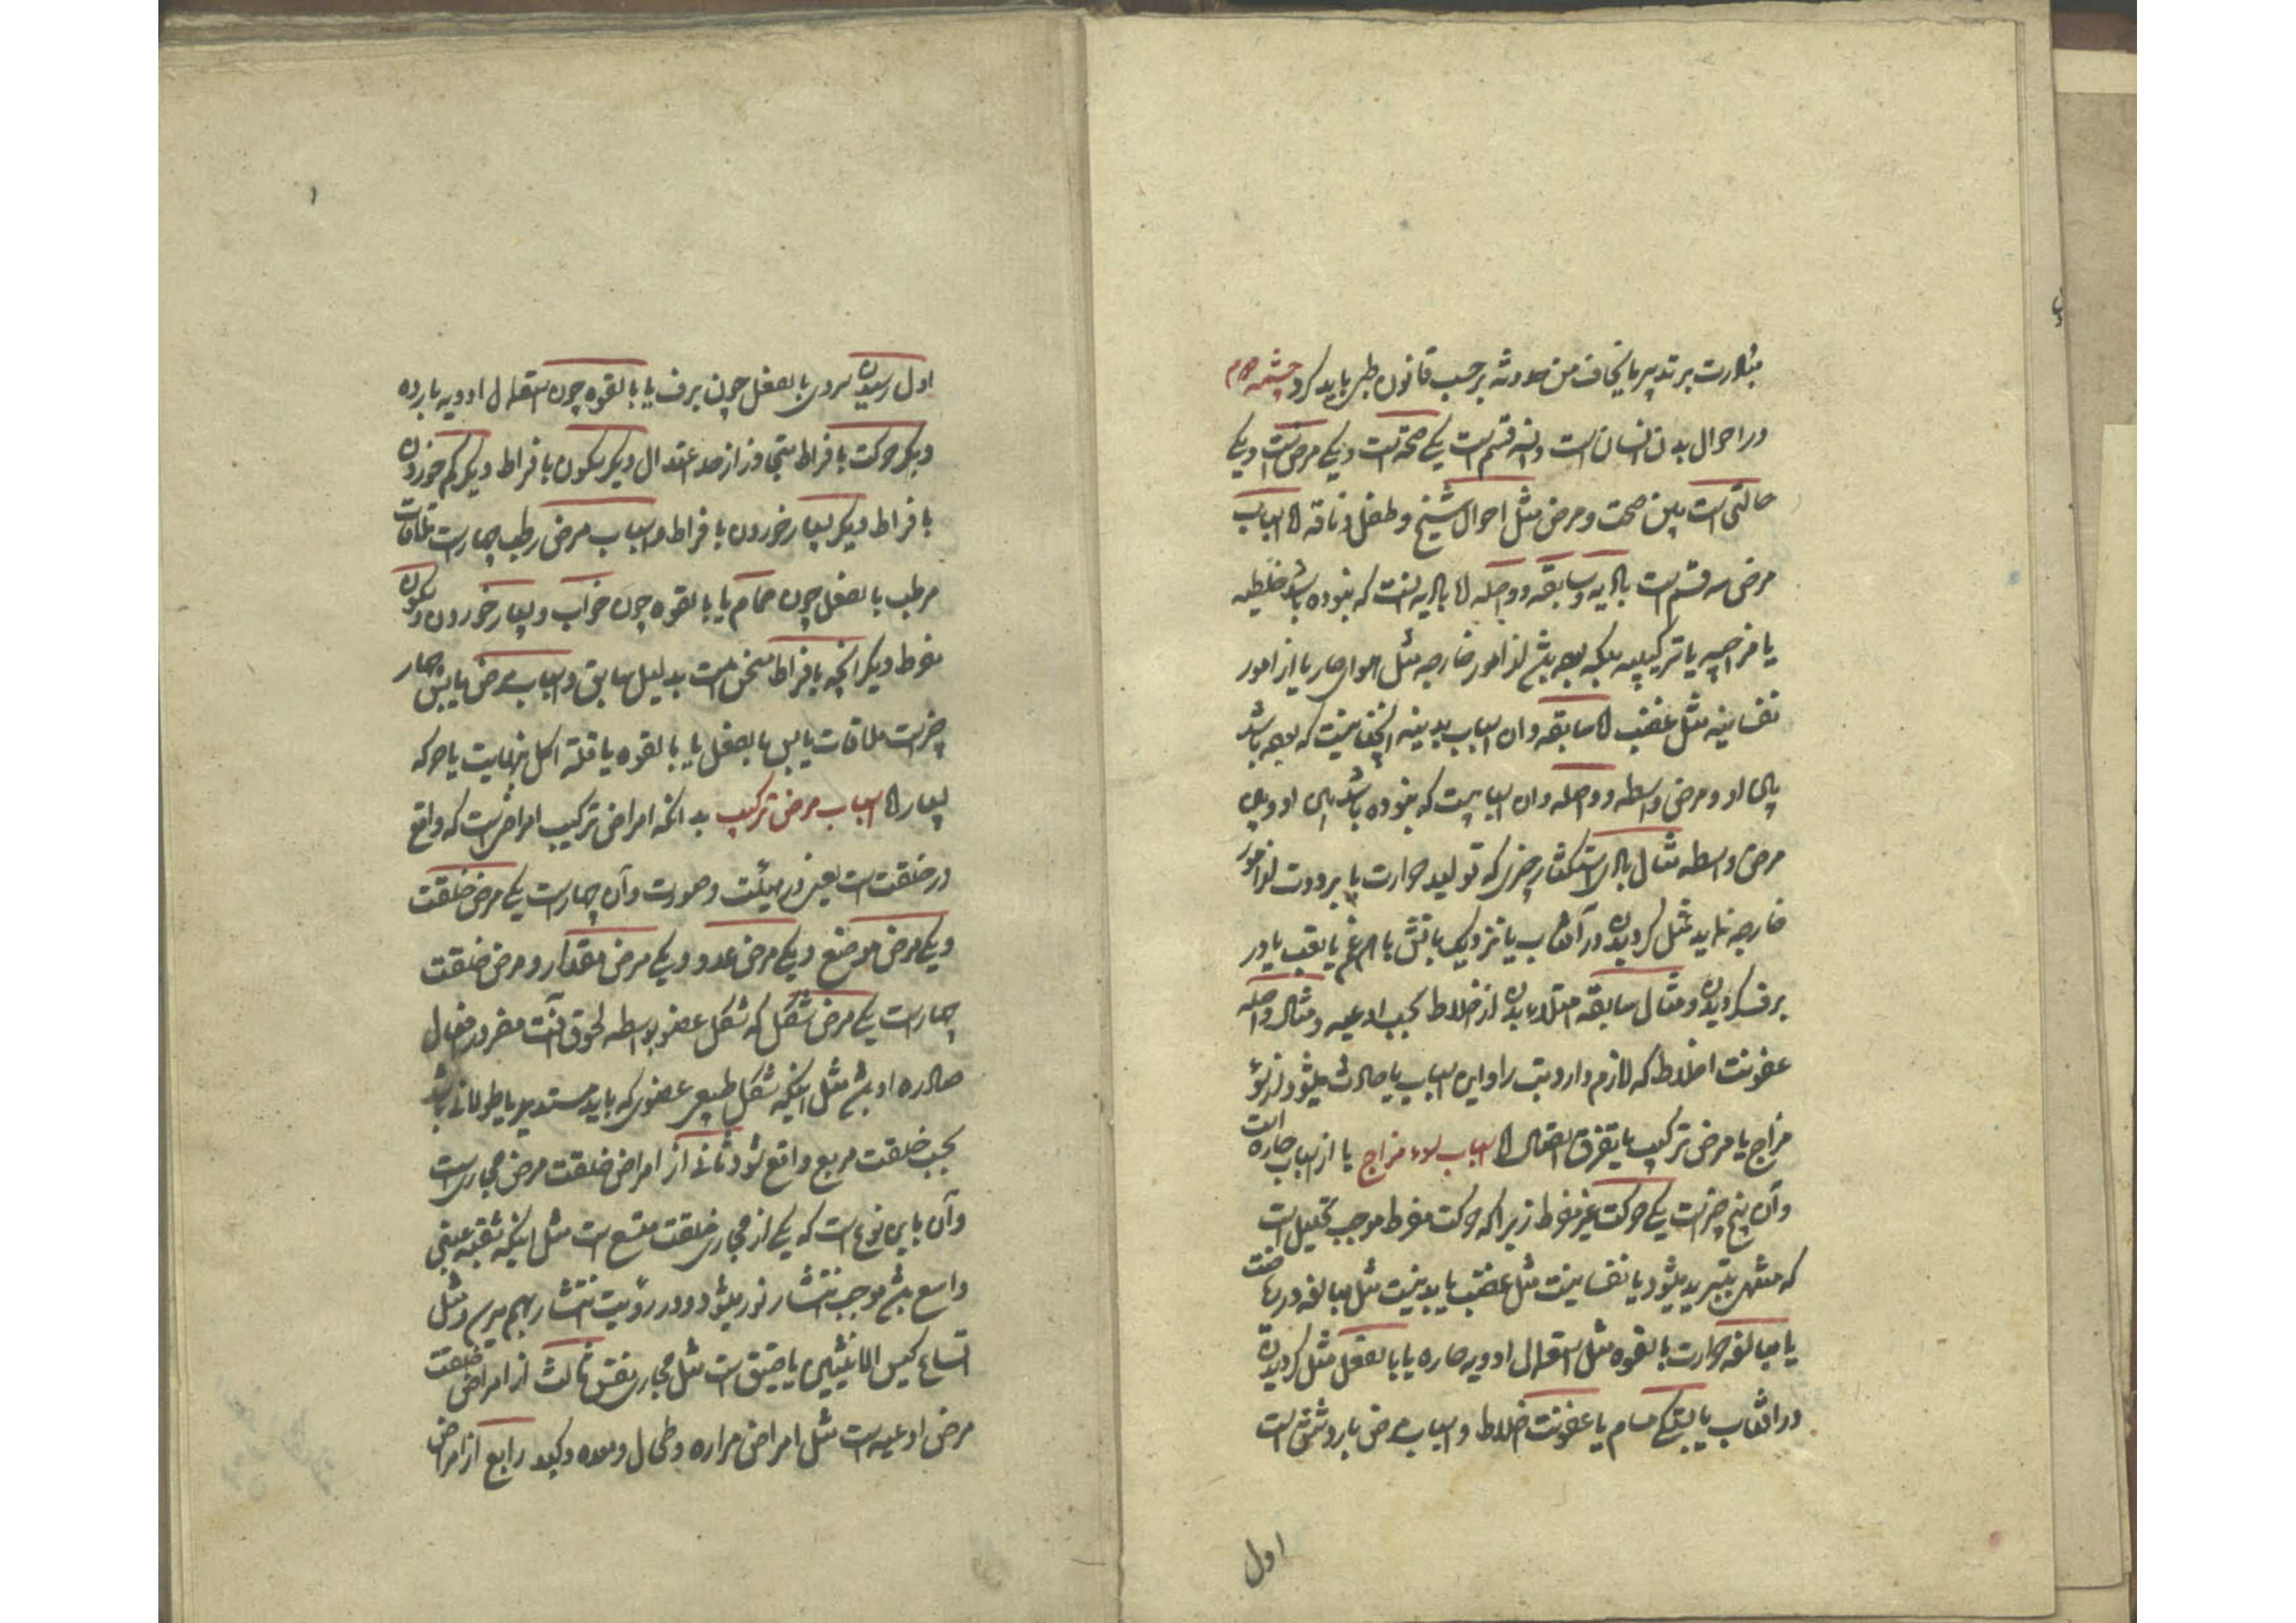 مبادرت بر تدبیر ما یخاف من حدوثه بر حسب قانون طبی باید کرد چشمه
در احوال بدن انسان است و آن سه قسم است یکی صحت است و یکی مرض است و یکی
حالتی است بین صحت و مرض مثل احوال شیخ و طفل و ناقه اما اسباب
مرض سه قسم است بادیه و سابقه و واصله اما بادیه آنست که نبوده باشد خلطیه
یا مزاجیه یا ترکیبیه بلکه بوده باشد از امور خارجه مثل هوای حار یا از امور
نفسانیه مثل غضب اما سابقه و آن اسباب بدنیه است که بوده باشد
میان او و مرض واسطه و واصله و آن اسبابیست که نبوده باشد میان او و میان
مرض واسطه مثال بادی استکثار چیزی که تولید حرارت یا برودت از امور
خارجه نماید مثل گردیدن در آفتاب یا نزدیک بآتش یا هم و غم یا تعب یا در
برف گردیدن و مثال سابقه امتلاء بدن از اخلاط بحسب اوعیه و مثال واصله
عفونت اخلاط که لازم دارد تب را و این اسباب یا حادث میشود از سوء
مزاج یا مرض ترکیب یا تفرق اتصال اما اسباب سوء مزاج یا از اسباب حاره است
و آن پنج چیز است یکی حرکت غیر مفرط زیرا که حرکت مفرط موجب تحلیل است
که منتهی بتبرید میشود یا نفسانیست مثل غضب یا بدنیست مثل مبالغه در ریاضت
یا مبالغه حرارت بالقوه مثل استعمال ادویه حاره یا بالفعل مثل گردیدن
در آفتاب یا بستگی مسام یا عفونت اخلاط و اسباب مرض بارد شش است
اول
اول رسیدن سردی بالفعل چون برف یا بالقوه چون استعمال ادویه بارده
دیگر حرکت بافراط متجاوز از حد اعتدال دیگر سکون بافراط دیگر کم خوردن
بافراط دیگر بسیار خوردن بافراط و اسباب مرض رطب چهار است ملاقات
مرطب بالفعل چون حمام یا بالقوه چون خواب و بسیار خوردن و سکون
مفرط دیگر آنچه بافراط مسخن است بدلیل سابق و اسباب مرض یابس چهار
چیز است ملاقات یابس بالفعل یا بالقوه یا قلة اکل بنهایت یا حرکه
بسیار اما اسباب مرض ترکیب بدانکه امراض ترکیب امراضی است که واقع
در خلقت است یعنی در هیئت و صورت و آن چهار است یکی مرض خلقت
و یکی مرض موضع و یکی مرض عدد و یکی مرض مقدار و مرض خلقت
چهار است یکی مرض شکل که شکل عضو بواسطه لحوق آفت مضر در افعال
صادره او باشد مثل اینکه شکل طبیعی عضوی که باید مستدیر یا طولانی باشد
بحسب خلقت مربع واقع شود ثانی از امراض خلقت مرض مجاری است
و آن باین نوع است که یکی از مجاری خلقت متسع است مثل اینکه ثقبه عنبی
واسع باشد موجب انتشار نور میشود و در رؤیت انتشار بهم میرسد و مثل
اتساع کیس الانثیین یا ضیق است مثل مجاری نفس ثالث از امراض خلقت
مرض اوعیه است مثل امراض مراره و طحال و معده و کبد رابع از امراض